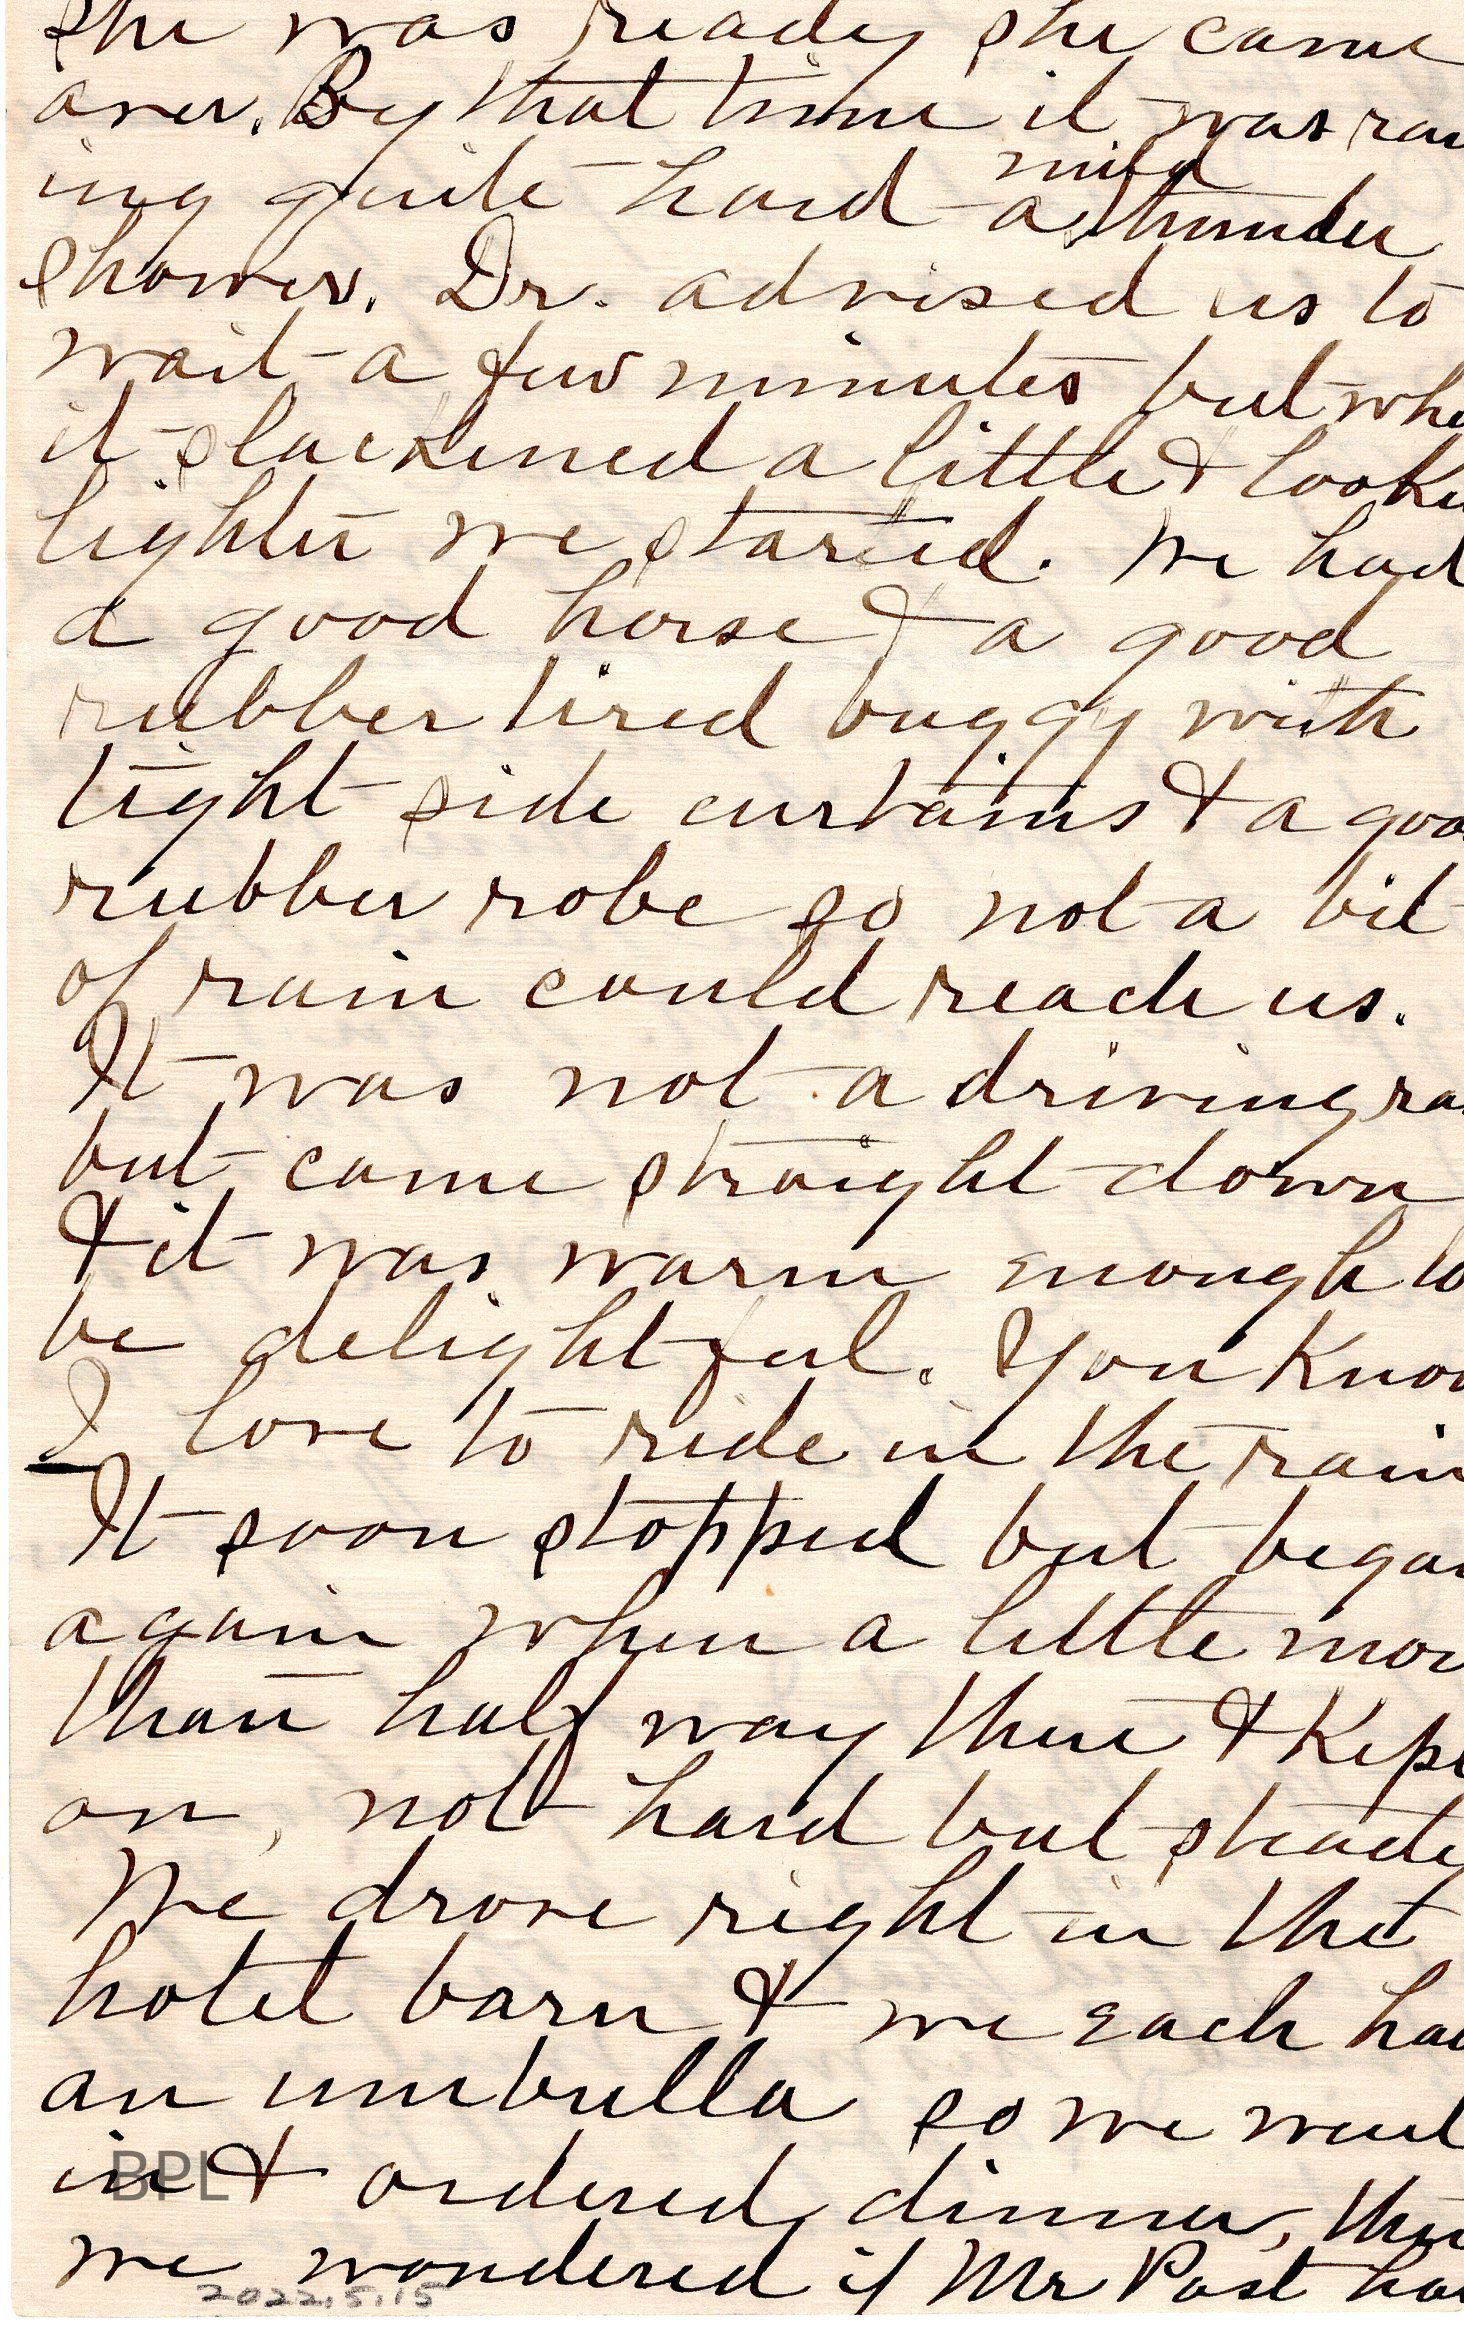 she was ready she came
over. By that time it was rain
ing quite hard a mild thunder
shower. Dr. advised us to
wait a few minutes but whe
it slackened a little & looke
lighter we started. We had
a good horse & a good
rubber tired buggy with
tight side curtains & a goo
rubber robe so not a bit
of rain could reach us.
It was not a driving ra
but came straight down
& it was warm enough to
be delightful. You Know
I love to ride in the rain
It soon stopped but began
again when a little mor
than half way there & Kept
on, not hard but steady
We drove right in the
hotel barn & we each had
an umbrella so we went
in & ordered dinner, then
we wondered if Mr Post ha
BPL
2022.5.15